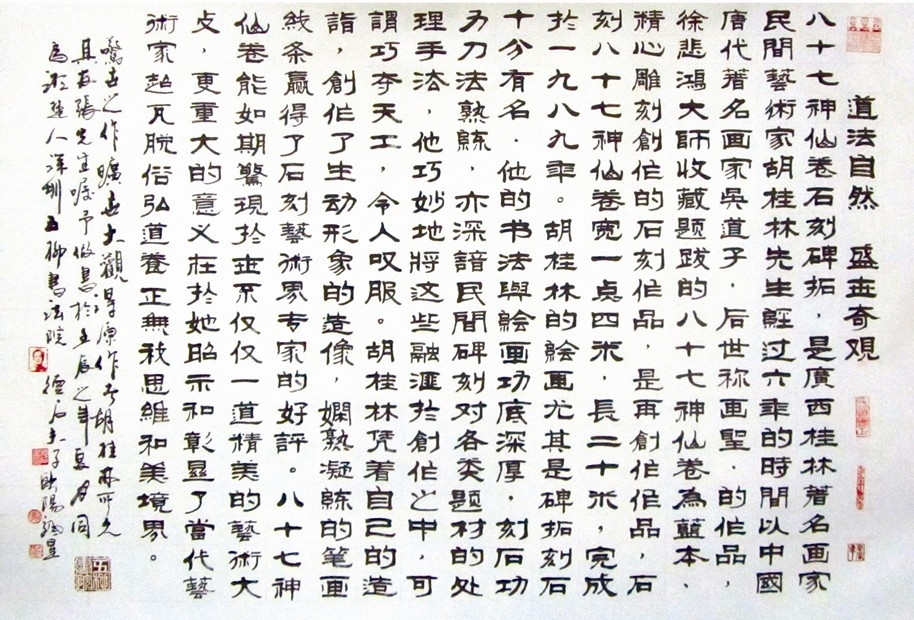 道法自然 盛世奇观
八十七神仙卷石刻碑拓，是廣西桂林著名画家
民間藝術家胡桂林先生經过六年的時間以中國
唐代著名画家吳道子，后世称画聖、的作品，
徐悲鴻大師收藏题跋的八十七神仙卷為藍本、
精心雕刻創作的石刻作品，是再創作作品，石
刻八十七神仙卷宽一点四米，長二十米，完成
於一九八九年。胡桂林的繪画尤其是碑拓刻石
十分有名．他的书法與繪画功底深厚，刻石功
力刀法熟練，亦深諳民間碑刻对各类题材的处
理手法，他巧妙地將这些融滙於創作之中，可
謂巧夺天工，令人叹服。胡桂林凭着自己的造
詣，創作了生动形象的造像，嫻熟凝練的笔画
线条赢得了石刻藝術界专家的好評。八十七神
仙卷能如期驚現於世不仅仅一道精美的藝術大
，更重大的意义在於她昭示和彰显了當代藝
術家超凡脱俗弘道養正無我思維和美境界。
驚世之作曠世大觀原作者胡桂林
其友張先生囑予做書於壬辰之年夏月
人深圳五柳書法院